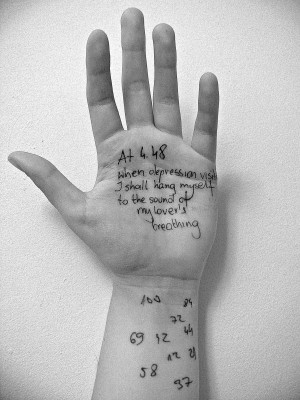 At 4.48
when depression visits
I shall hang myself
to the sound of
my lover's
breathing
100 84
72
69 12 44
12 21
58
37